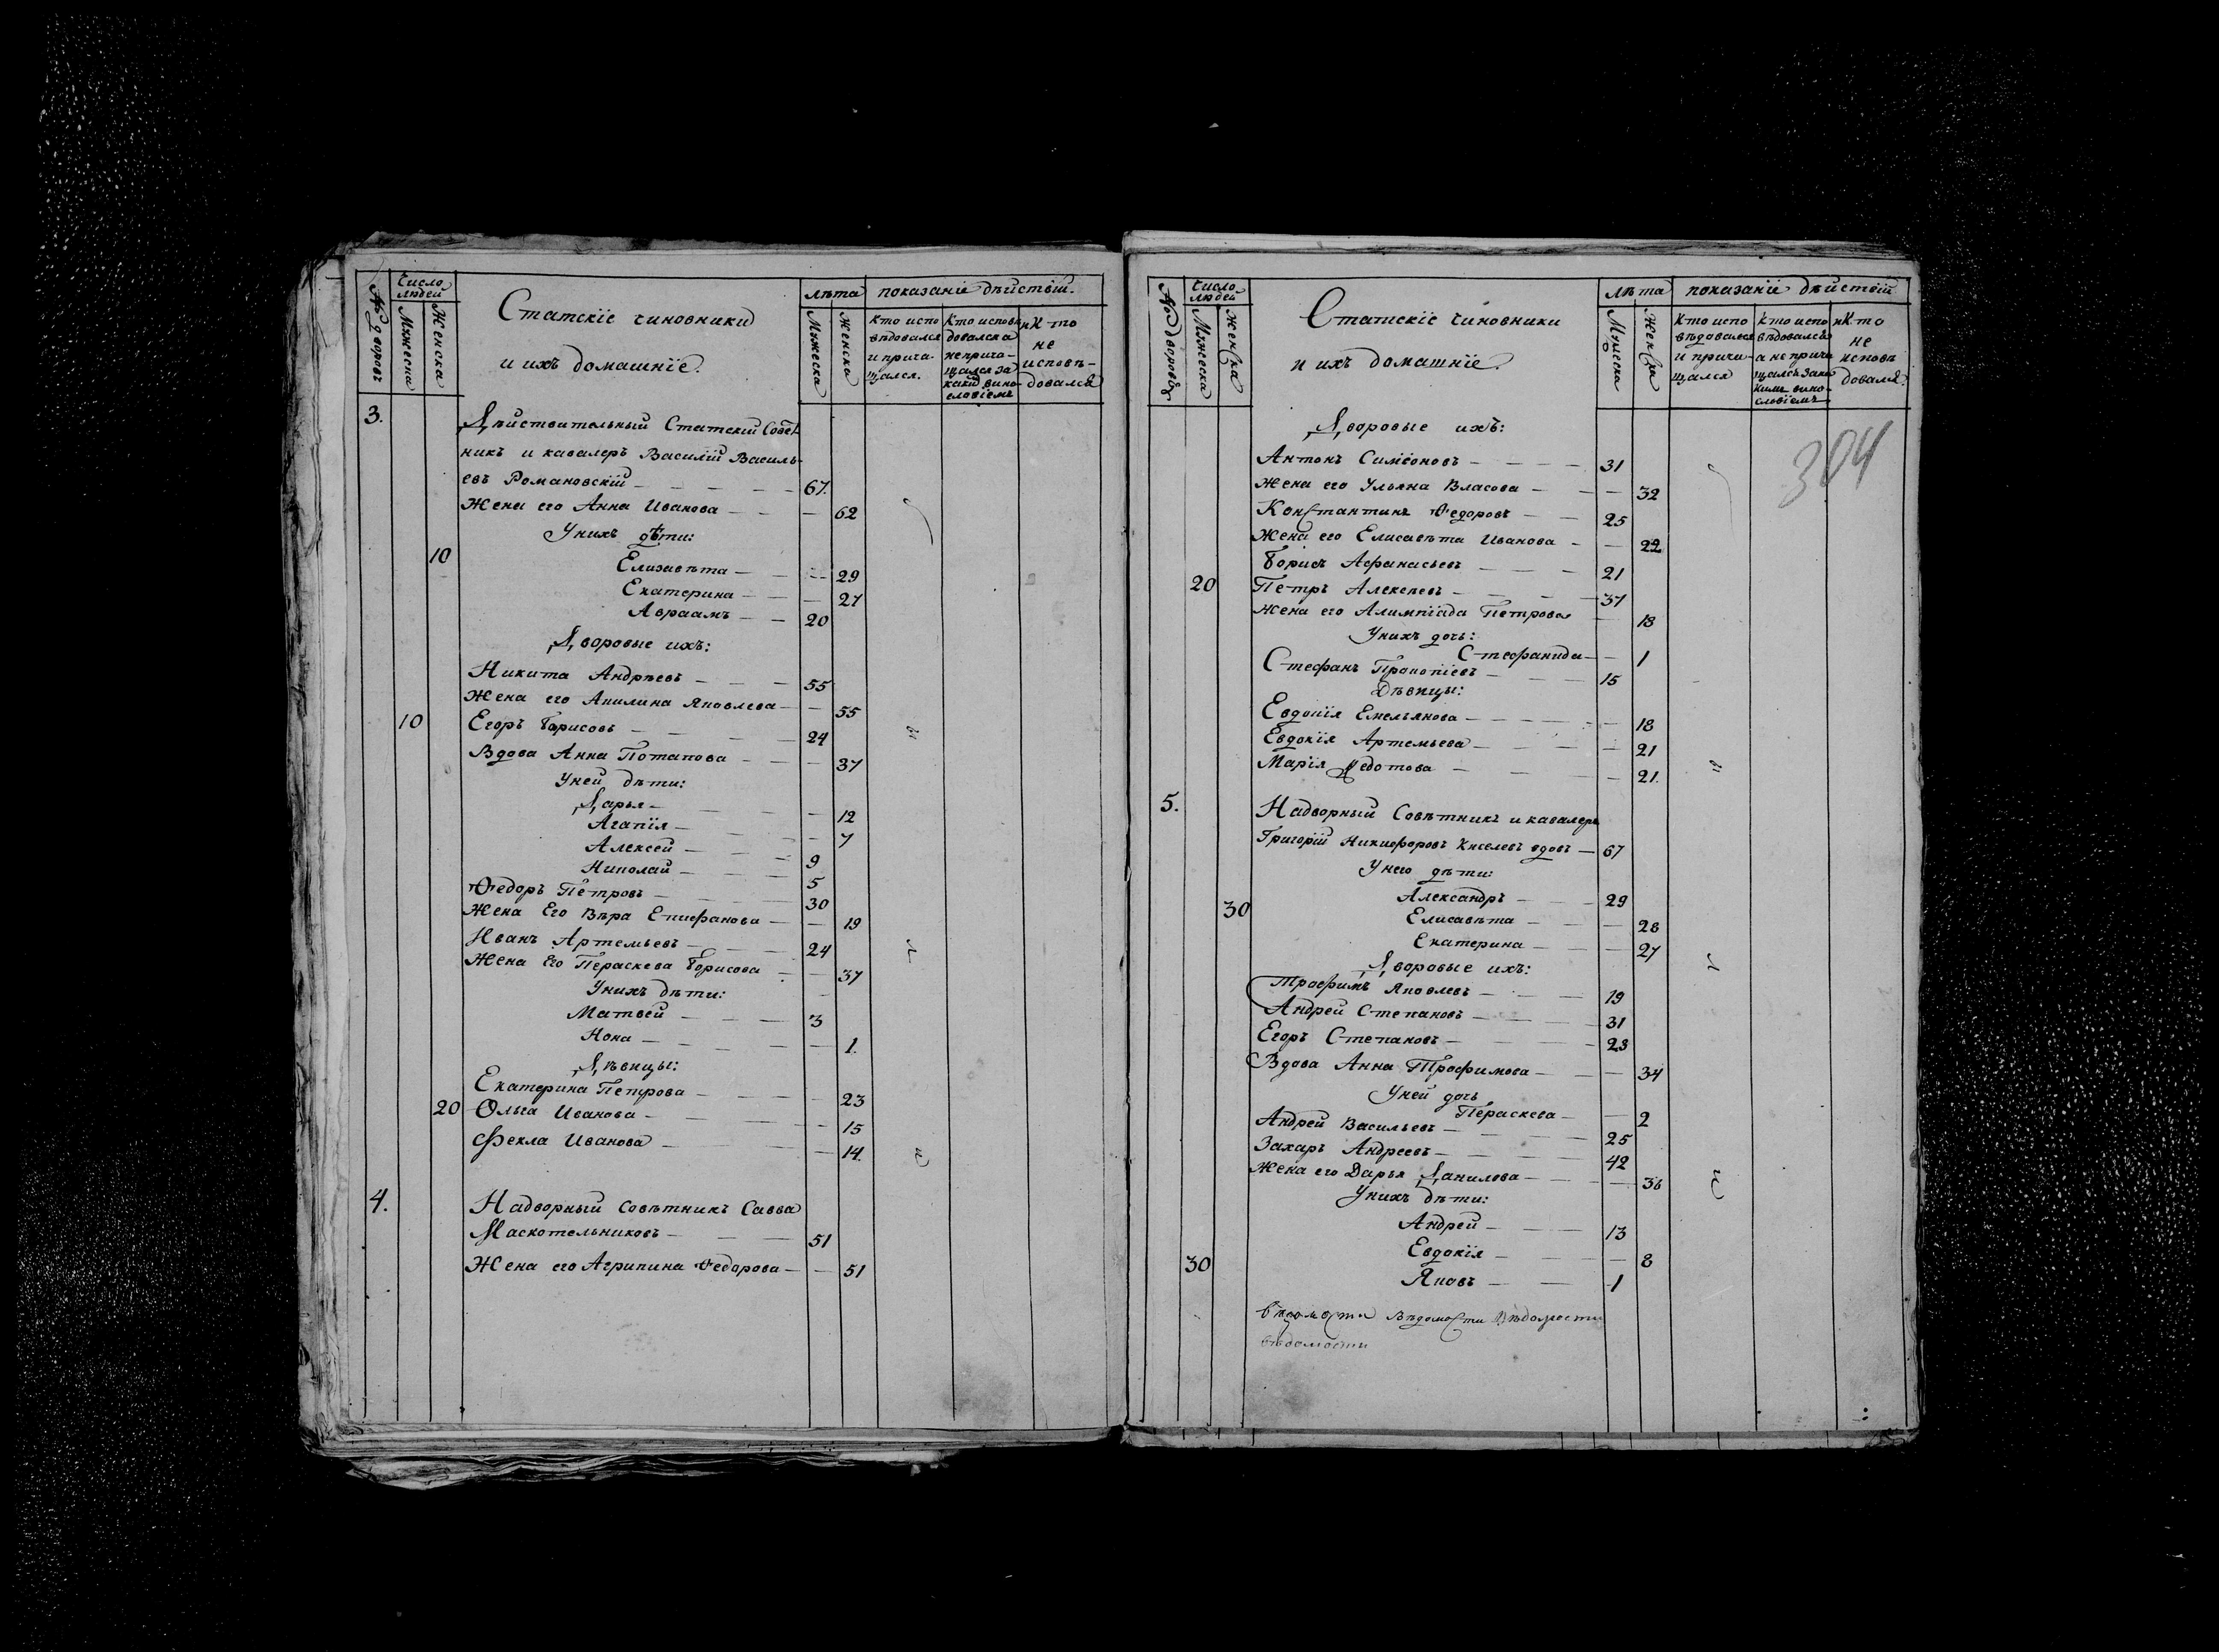 № дворовъ
Число людей
Мужеска
Женска
Статскіе чиновники
и ихъ домашніе.
лѣта
Мужеска
Женска
показаніе дѣйствій.
Кто испо
вѣдовался
и прича-
щался.
Кто исповѣ
довался а
неприча-
щался за
какимъ вино-
словіемъ
Кто
не
исповѣ-
довался
3.
Дѣйствительный Статскій Совѣт
никъ и кавалеръ Василій Василь-
евъ Романовскій — 67.
Жена его Анна Иванова — 62
У нихъ дѣти:
10 Елизавѣта — 29
Екатерина — 27
Авраамъ — 20
Дворовые ихъ:
Никита Андрѣевъ — 55
Жена его Акилина Яковлева — 55
10 Егоръ Борисовъ — 24
Вдова Анна Потапова — 37
У ней дѣти:
Дарья — 12
Агапія — 7
Алексей — 9
Николай — 5
Ѳедоръ Петровъ — 30
Жена Его Вѣра Епифанова — 19
Иванъ Артемьевъ — 24
Жена Его Пераскева Борисова — 37
У нихъ дѣти:
Матвей — 3
Нона — 1.
Дѣвицы:
Екатерина Петрова — 23
20 Ольга Иванова — 15
Фекла Иванова — 14.
4. Надворный Совѣтникъ Савва
Маскотельниковъ — 51
Жена его Агрипина Ѳедорова — 51
№ дворовъ
Число людей
Мужеска
Женска
Статскіе чиновники
и ихъ домашніе.
лѣта
Мужеска
Женска
показаніе дѣйствій
Кто испо
вѣдовался
и прича-
щался
Кто испо
вѣдовался
а не прича
щался за ка
кимъ вино-
словіемъ
Кто
не
исповѣ
довался.
304
Дворовые ихъ:
Антонъ Симеоновъ — 31
Жена его Ульяна Власова — 32
Константинъ Ѳедоровъ — 25
Жена его Елисавѣта Иванова — 22
Борисъ Афанасьевъ — 21
20 Петръ Алексеевъ — 37
Жена его Алимпіада Петрова — 18
У нихъ дочь:
Стефанида — 1
Стефанъ Прокопіевъ — 15
Дѣвицы:
Евдокія Емельянова — 18
Евдокія Артемьева — 21
Марія Федотова — 21.
5. Надворный Совѣтникъ и кавалеръ
Григорій Никифоровъ Киселевъ вдовъ — 67
У него дѣти:
Александръ — 29
30 Елисавѣта — 28
Екатерина — 27
Дворовые ихъ:
Трофимъ Яковлевъ — 19
Андрей Степановъ — 31
Егоръ Степановъ — 23
Вдова Анна Трофимова — 34
У ней дочь
Пераскева — 2
Андрей Васильевъ — 25
Захаръ Андреевъ — 42
Жена его Дарья Данилова — 36
У нихъ дѣти:
Андрей — 13
Евдокія — 8
30 Яковъ — 1
Вѣдомости Вѣдомости
вѣдомости